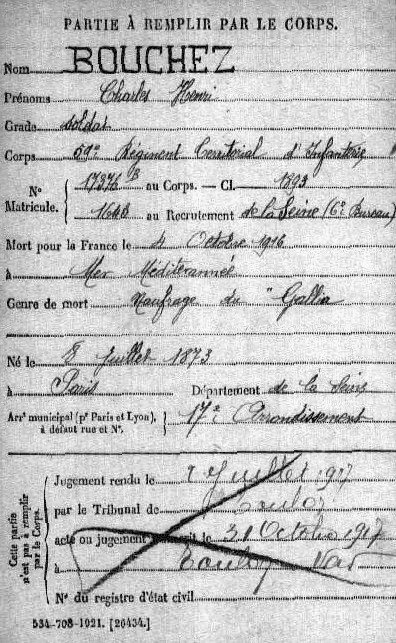 PARTIE À REMPLIR PAR LE CORPS.
Nom BOUCHEZ
Prénoms Charles Henri
Grade soldat
Corps 59e Régiment Territorial d'Infanterie
N° Matricule. { 17376 au Corps. — Cl. 1893
1643 au Recrutement de la Seine (6e Bureau)
Mort pour la France le 4 Octobre 1916
à Mer Méditerannée
Genre de mort Naufrage du "Gallia
Né le 8 Juillet 1873
à Paris Département de la Seine
Arrt municipal (pr Paris et Lyon), à défaut rue et N°. } 17e Arrondissement
Cette partie n'est pas à remplir par le Corps.
Jugement rendu le Juillet 1917
par le Tribunal de Toulon
acte ou jugement le 31 Octobre 1917
à Toulon Var
N° du registre d'état civil
534-708-1921. [26434.]